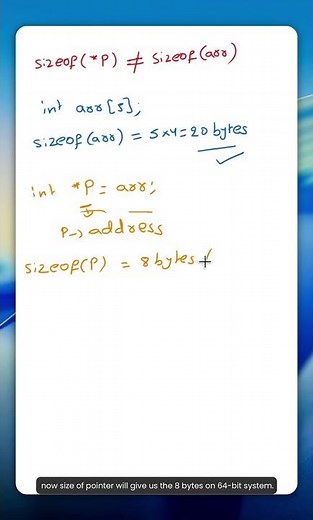 sizeof(*P) ≠ sizeof(arr)
int arr[5];
sizeof(arr) = 5x4 = 20 bytes
int *P = arr;
P → address
sizeof(P) = 8 bytes (
now size of pointer will give us the 8 bytes on 64-bit system.